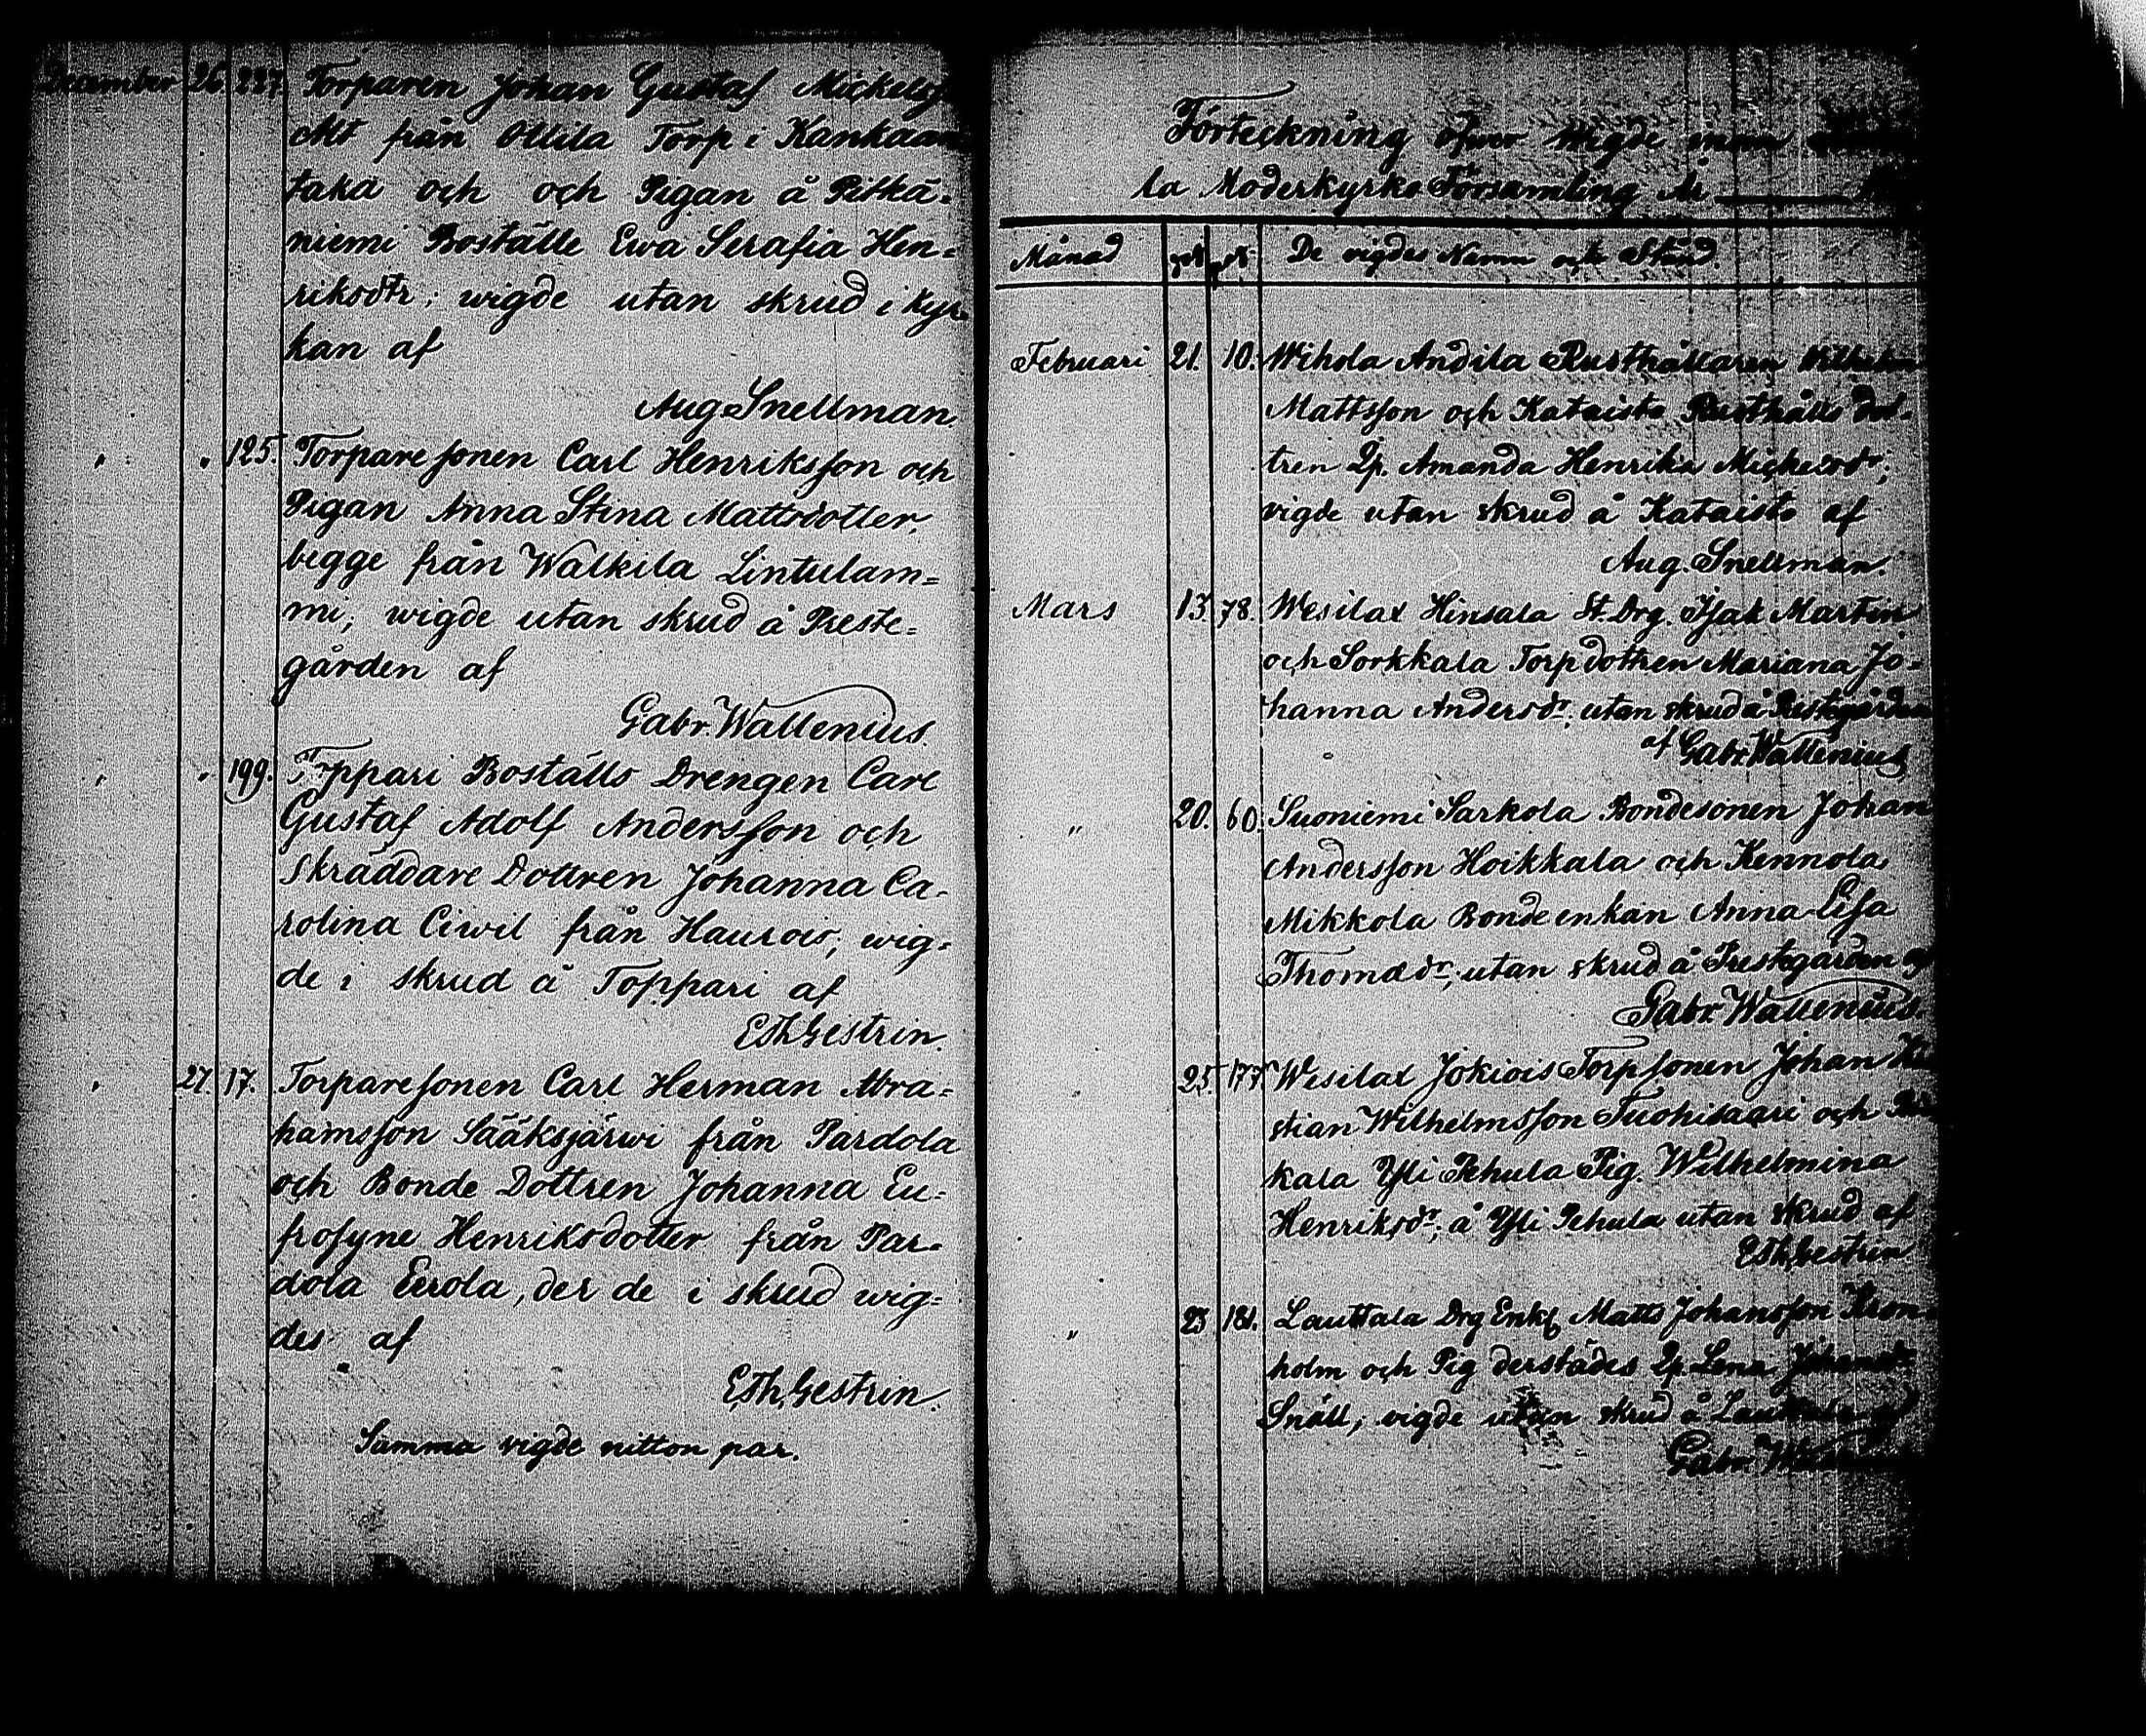 December 26. 227. Torparen Johan Gustaf Mickelss
Alt från Ollila Torp i Kankaan
taka och och Pigan å Pitkä-
niemi Boställe Ewa Serafia Hen-
riksdtr; wigde utan skrud i kyr-
kan af
Aug Snellman.
" " 125. Torpare sonen Carl Henriksson och
Pigan Anna Stina Mattsdotter,
begge från Walkila Lintulam-
mi; wigde utan skrud å Preste-
gården af
Gabr. Wallenius.
" " 199. Toppari Boställs Drengen Carl
Gustaf Adolf Andersson och
Skräddare Dottren Johanna Ca-
rolina Ciwil från Haurois; wig-
de i skrud å Toppari af
E Th Gestrin.
" 27. 17. Torparesonen Carl Herman Abra-
hamsson Sääksjärwi från Pardola
och Bonde Dottren Johanna Eu-
frosyne Henriksdotter från Par-
dola Eerola, der de i skrud wig-
des af
E Th Gestrin.
Samma vigde nitton par.
Förteckning öfver wigde inom
la Moderkyrko Församling År
Månad De vigdes Namn och Stånd.
Februari 21. 10. Wihola Andila Rusthållaren Wilhelm
Mattsson och Kataisto Rusthålls dot-
tren Jp. Amanda Henrika Mickelsdr;
vigde utan skrud å Kataisto af
Aug. Snellman.
Mars 13. 78. Wesilax Hinsala St. Drg. Isak Martin
och Sorkkala Torpdottren Mariana Jo-
hanna Andersdr; utan skrud å Prestgården
af Gabr. Wallenius
" 20. 60. Suoniemi Sarkola Bondesonen Johan
Andersson Hoikkala och Kennola
Mikkola Bonde enkan Anna Lisa
Thomædr; utan skrud å Prestegården af
Gabr. Wallenius.
" 25. 177 Wesilax Jokiois Torpsonen Johan
stian Wilhelmsson Tuohisaari och
kala Yli Pehula Pig. Wilhelmina
Henriksdr; å Yli Pehula utan skrud af
E Th Gestrin
" 23 181. Lauttala Drg Enkl Matts Johansson Kron
holm och Pig derstädes Jp. Lena Johansdr
Snäll; vigde utan skrud å Lauttala af
Gabr.